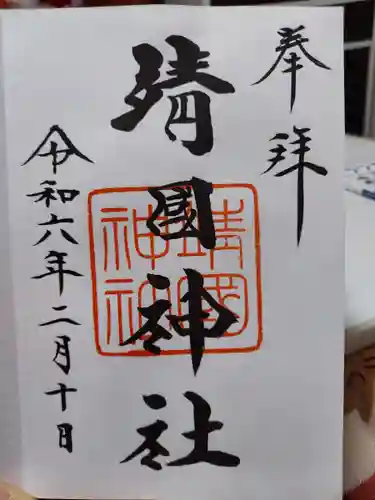 奉拝
靖國神社
靖國
神社
令和六年二月十日